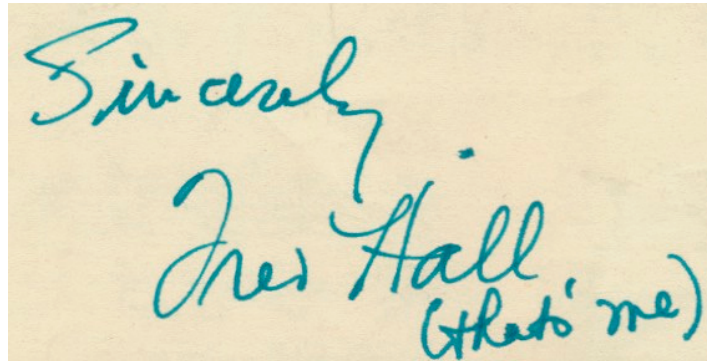 Sincerely
Fred Hall
(that's me)